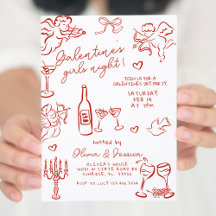 Galentine's
girls night!
JOIN US FOR A
GALENTINE'S DAY PARTY
SATURDAY
FEB 14
AT 7PM
hosted by
Olivia & Jessica
OLIVIA'S HOUSE
RSVP TO LUCY